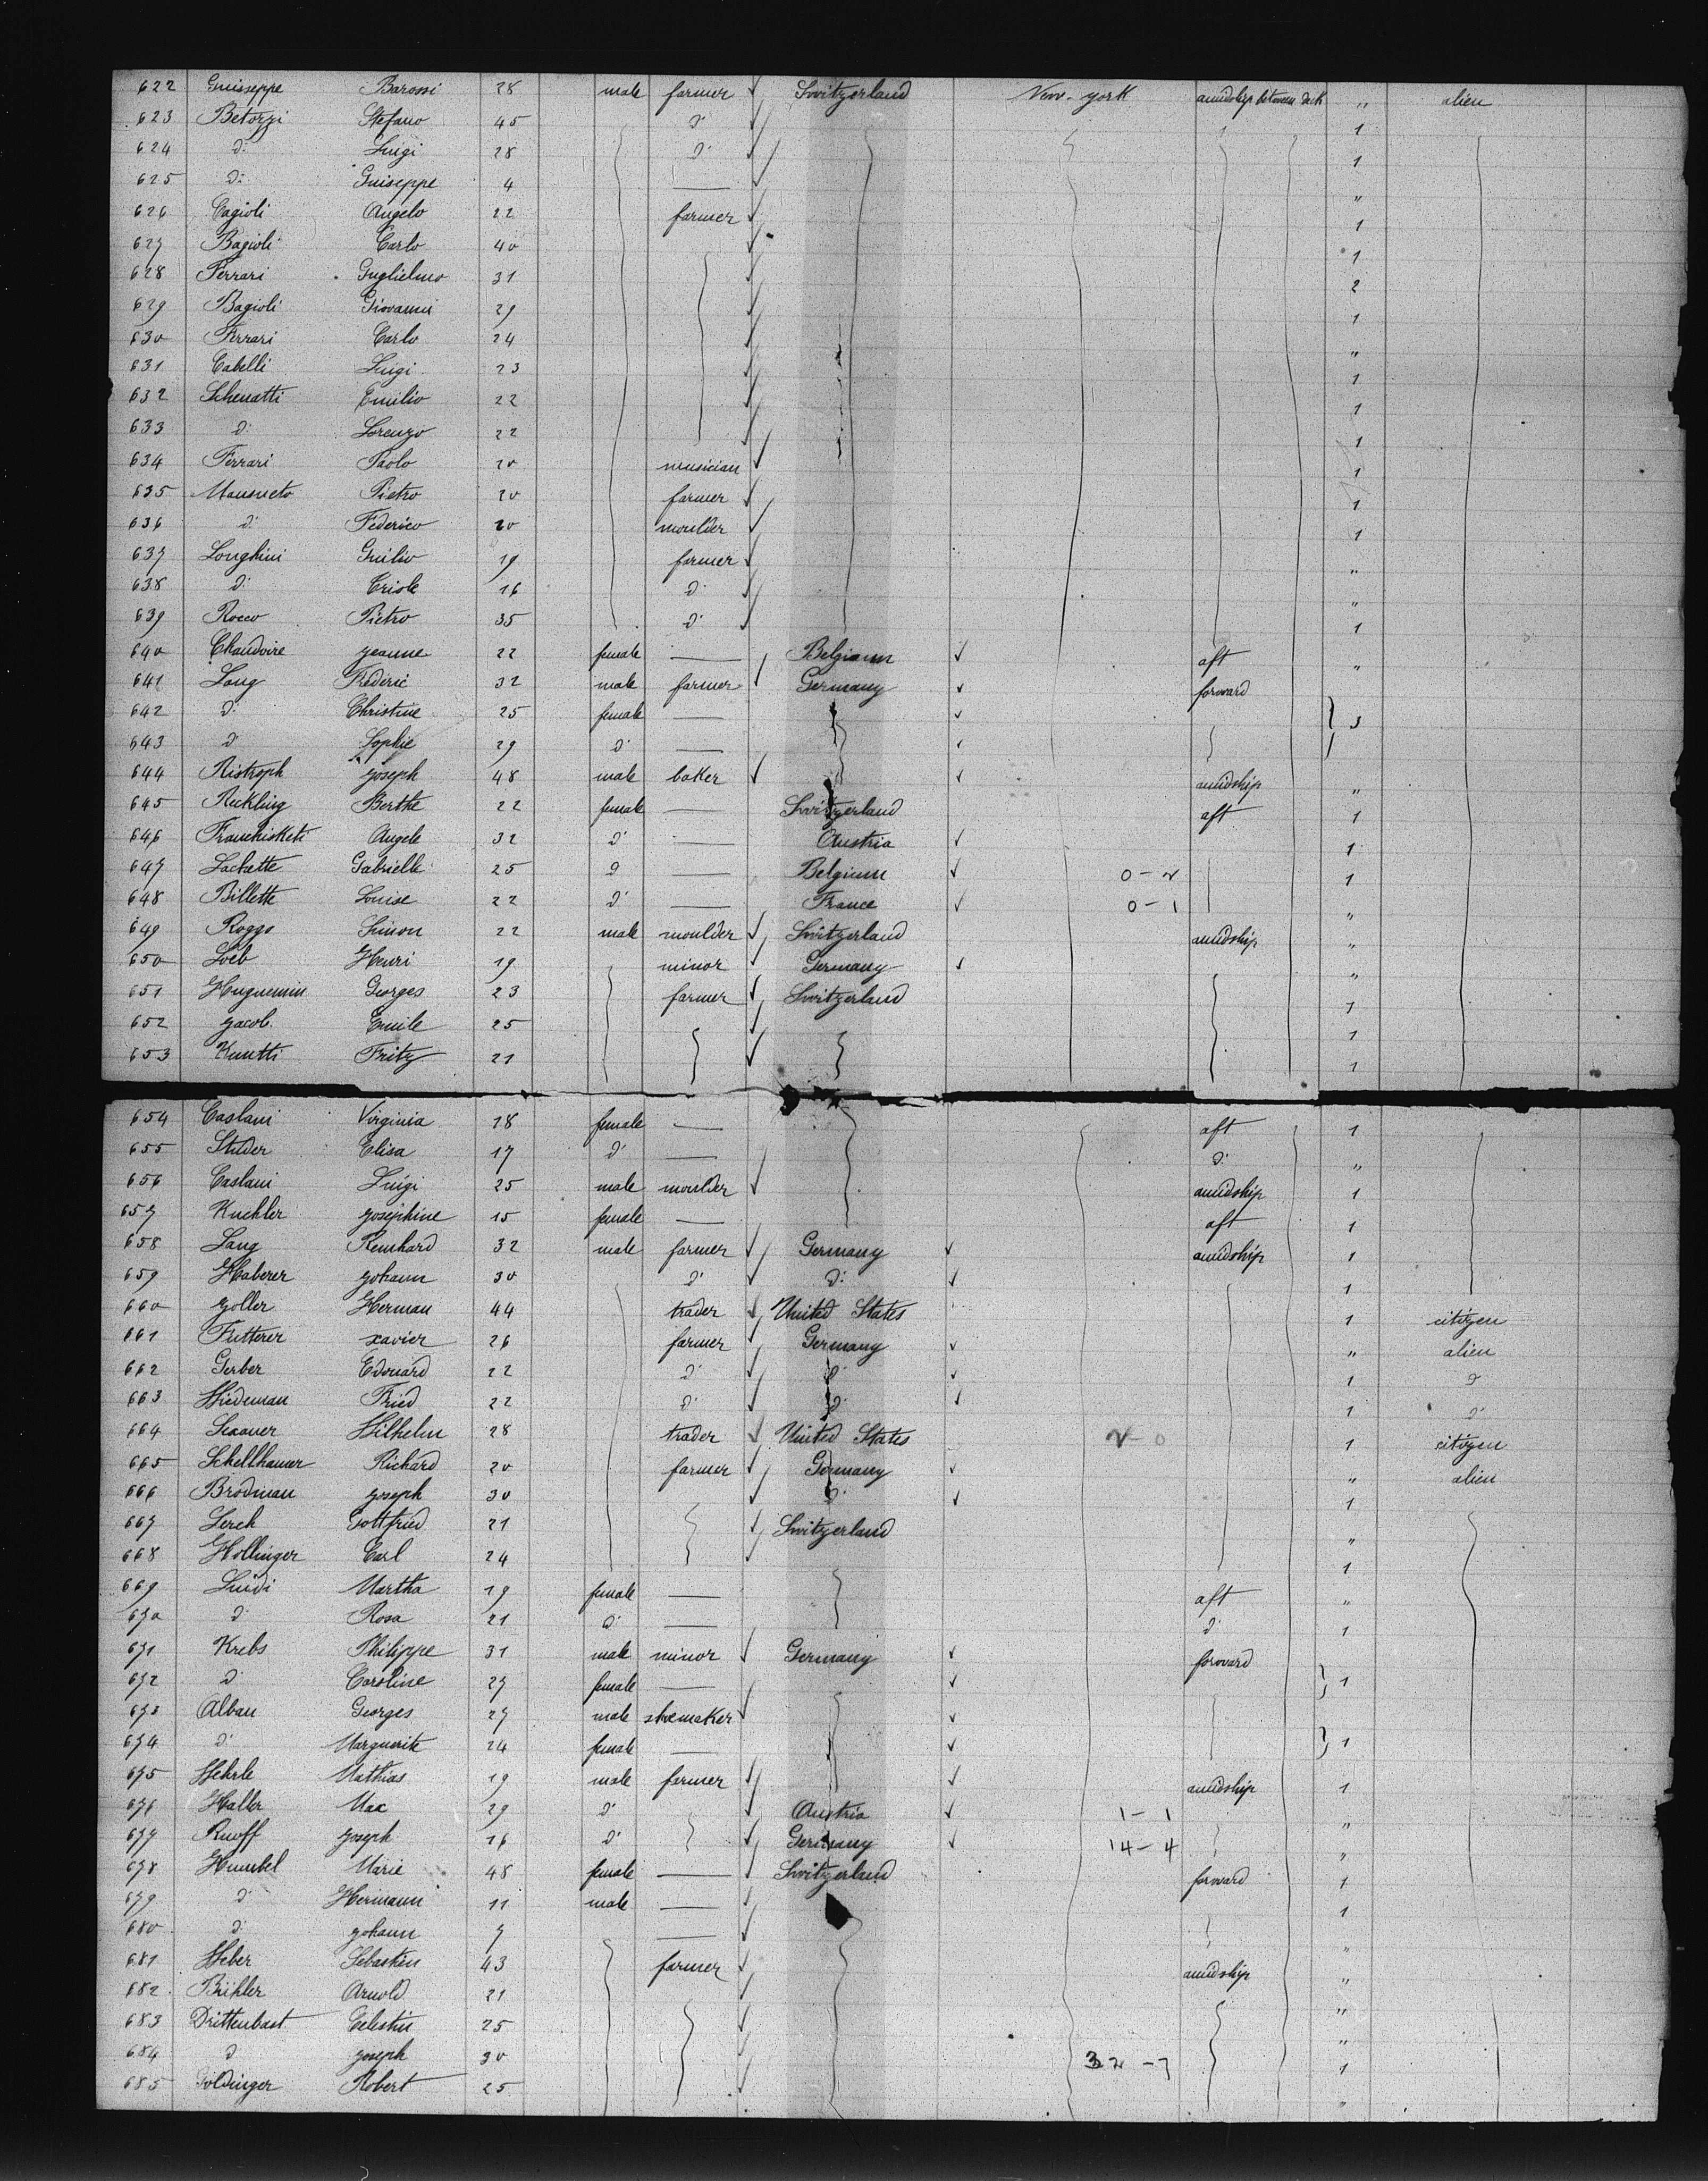 622 Guisseppe Barossi 28 male farmer Switzerland New-york amidship between deck " alien
623 Betozzi Stefano 45 d° 1
624 d° Luigi 28 d° 1
625 d° Guiseppe 4 — "
626 Cagioli Angelo 22 farmer 1
627 Bagioli Carlo 40 1
628 Ferrari Guglielmo 31 2
629 Bagioli Giovanni 29 1
630 Ferrari Carlo 24 "
631 Cabelli Luigi 23 1
632 Schenatti Emilio 22 1
633 d° Lorenzo 22 1
634 Ferrari Paolo 20 musician 1
635 Mansueto Pietro 20 farmer 1
636 d° Federico 20 moulder 1
637 Longhini Guilio 19 farmer "
638 d° 16 d° "
639 Rocco Pietro 35 d° 1
640 Chaudoire Jeanne 22 female — Belgium aft "
641 Lang Frederic 32 male farmer Germany forward
642 d° Christine 25 female — 3
643 d° Sophie 29 d° —
644 Ristroph Joseph 48 male baker amidship "
645 Reckling Berthe 22 female — Switzerland aft 1
646 Angele 32 d° — Austria 1
647 Lackette Gabrielle 25 d° — Belgium 0-2 1
648 Billette Louise 22 d° — France 0-1 "
649 Roggo Simon 22 male moulder Switzerland amidship "
650 Loeb Henri 19 minor Germany "
651 Huguenin Georges 23 farmer Switzerland 1
652 Jacob Emile 25 1
653 Kuntti Fritz 21 1
654 Caslani Virginia 18 female — aft 1
655 Studer Elisa 17 d° — d° "
656 Caslani Luigi 25 male moulder amidship 1
657 Kuchler Josephine 15 female — aft 1
658 Lang Reinhard 32 male farmer Germany amidship 1
659 Haberer Johann 30 d° d° 1
660 Joller Herman 44 trader United States 1 citizen
661 Futterer Xavier 26 farmer Germany " alien
662 Gerber Edouard 22 d° d° 1 d°
663 Wiedeman Fried 22 d° d° 1 d°
664 Sexauer Wilhelm 28 trader United States 2-0 1 citizen
665 Schellhamer Richard 20 farmer Germany " alien
666 Brodman Joseph 30 d° 1
667 Lerch Gottfried 21 Switzerland "
668 Hollinger Carl 24 1
669 Luidi Martha 19 female — aft "
670 d° Rosa 21 d° — d° 1
671 Krebs Philippe 31 male minor Germany forward
672 d° Caroline 27 female — 1
673 Alban Georges 27 male shoemaker
674 d° Marguerite 24 female — 1
675 Wehrle Mathias 19 male farmer amidship 1
676 Haller Max 29 d° Austria 1-1 "
677 Ruoff Joseph 16 d° Germany 14-4 "
678 Humbel Marie 48 female — Switzerland forward 1
679 d° Hermann 11 male — 1
680 d° Johann 7 — "
681 Weber Sebastien 43 farmer amidship "
682 Bühler Arnold 21 "
683 Drittenbast Celestin 25 "
684 d° Joseph 30 32-7 1
685 Goldinger Robert 25 "